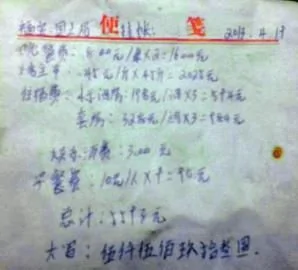 便 笺
2013.4.19
餐费:800元/桌×2=1600元
45元/斤×45斤=2025元
住宿费:标准间:198元/间×3=594元
套房:328元/间×3=984元
娱乐消费:300元
早餐费:10元/人×9=90元
总计:5593元
大写:伍仟伍佰玖拾叁圆